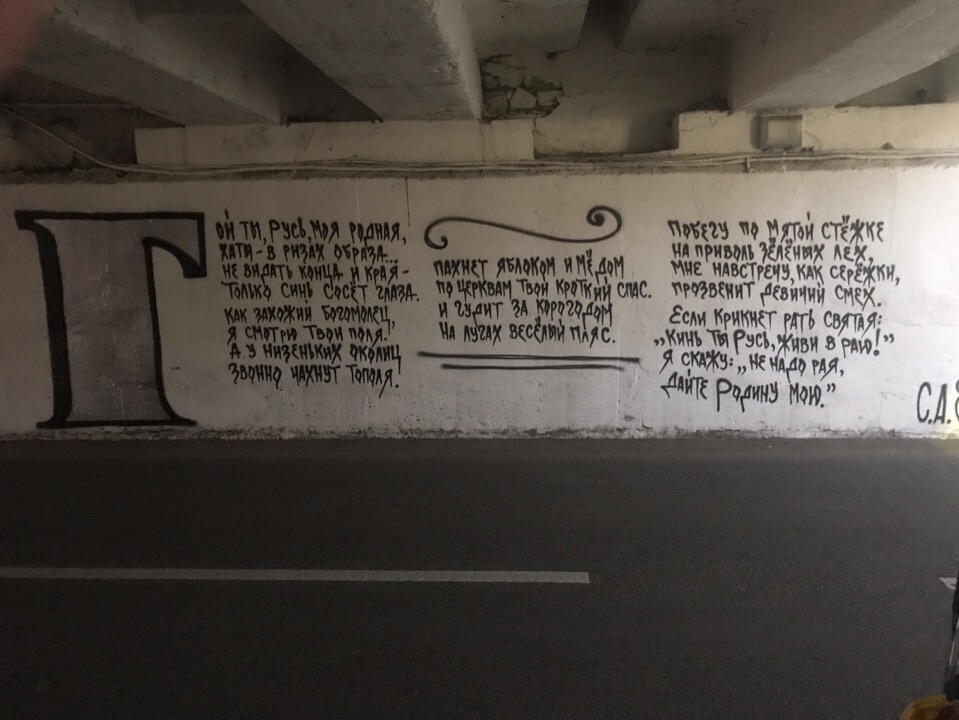 Гой ты, Русь, моя родная,
хати - в ризах образа...
не видать конца и края -
только синь сосёт глаза.
как захожий богомолец,
я смотрю твои поля.
а у низеньких околиц
звонно чахнут тополя.
пахнет яблоком и мёдом
по церквам твой кроткий спас.
и гудит за корогодом
на лугах весёлый пляс.
побегу по мятой стёжке
на приволь зёлёных лех,
мне навстречу, как серёжки,
прозвенит девичий смех.
Если крикнет рать святая:
„Кинь ты Русь, живи в раю!"
Я скажу: „не надо рая,
дайте Родину мою."
С.А.